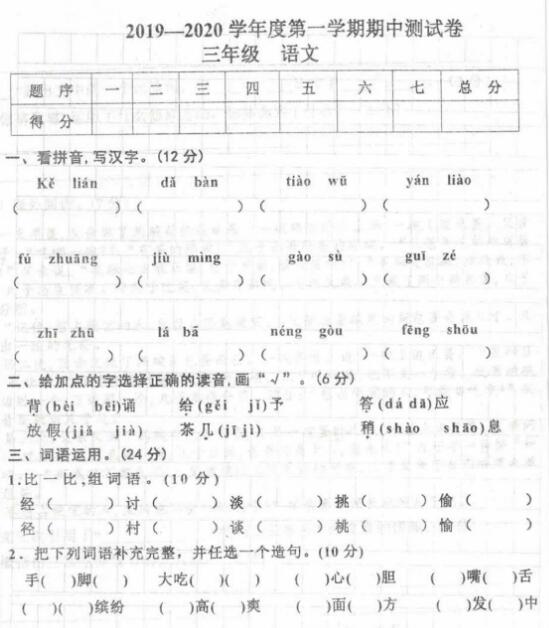 2019—2020 学年度第一学期期中测试卷
三年级 语文
题 序 一 二 三 四 五 六 七 总 分
得 分
一、看拼音,写汉字。(12 分)
Kě lián dǎ bàn tiào wǔ yán liào
( ) ( ) ( ) ( )
fú zhuāng jiù mìng gào sù guī zé
( ) ( ) ( ) ( )
zhī zhū lǎ bā néng gòu fēng shōu
( ) ( ) ( ) ( )
二、给加点的字选择正确的读音,画 “√” 。(6 分)
背(bèi bēi)诵 给(gěi jǐ)予 答(dá dā)应
放假(jiǎ jià) 茶几(jī jì) 稍(shào shāo)息
三、词语运用。(24 分)
1.比一比,组词语。(10 分)
经( ) 讨( ) 淡( ) 挑( ) 偷( )
径( ) 村( ) 谈( ) 桃( ) 愉( )
2. 把下列词语补充完整, 并任选一个造句。(10 分)
手( )脚( ) 大吃( )( ) ( )心( )胆 ( )嘴( )舌
( )( )缤纷 ( )高( )爽 ( )面( )方 ( )发( )中